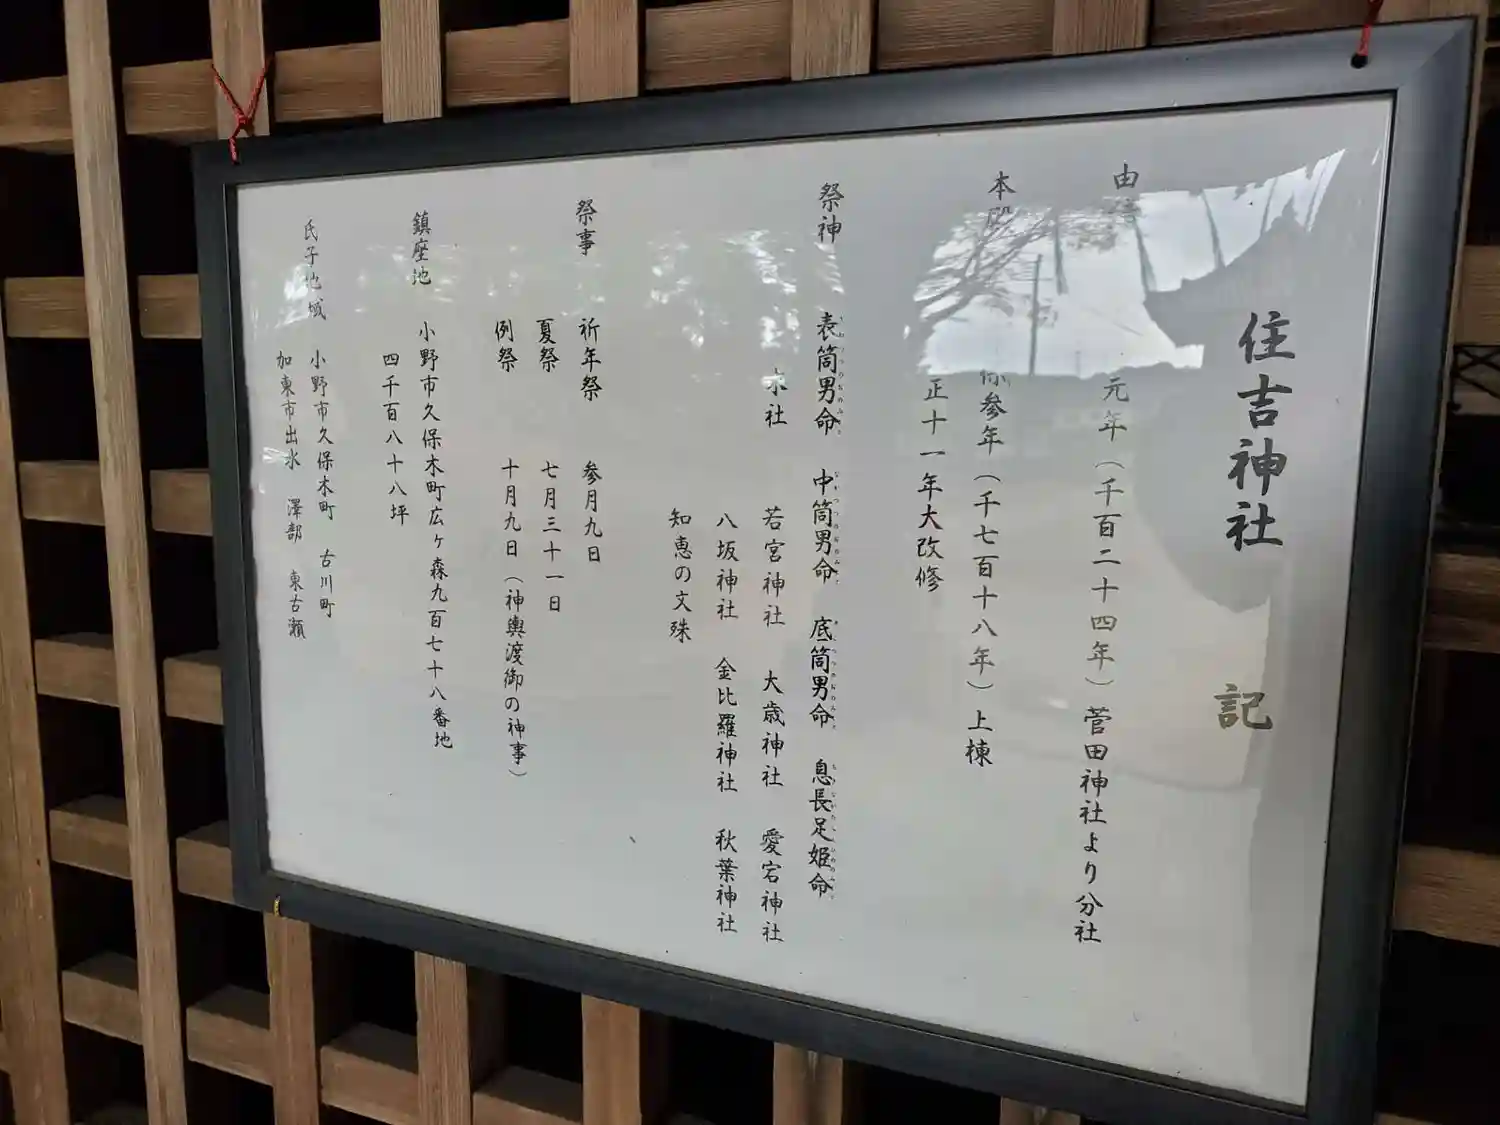 住吉神社 記
由 元年（千百二十四年）菅田神社より分社
本殿 参年（千七百十八年）上棟
正十一年大改修
祭神 表筒男命 中筒男命 底筒男命 息長足姫命
末社 若宮神社 大歳神社 愛宕神社
八坂神社 金比羅神社 秋葉神社
知恵の文殊
祭事 祈年祭 参月九日
夏祭 七月三十一日
例祭 十月九日（神輿渡御の神事）
鎮座地 小野市久保木町広ヶ森九百七十八番地
四千百八十八坪
氏子地域 小野市久保木町 古川町
加東市出水 澤部 東古瀬